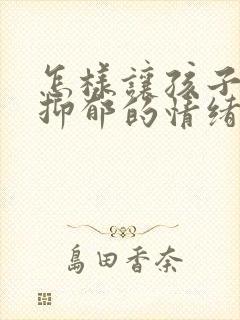 怎樣讓孩子
抑郁的情绪
島田香奈